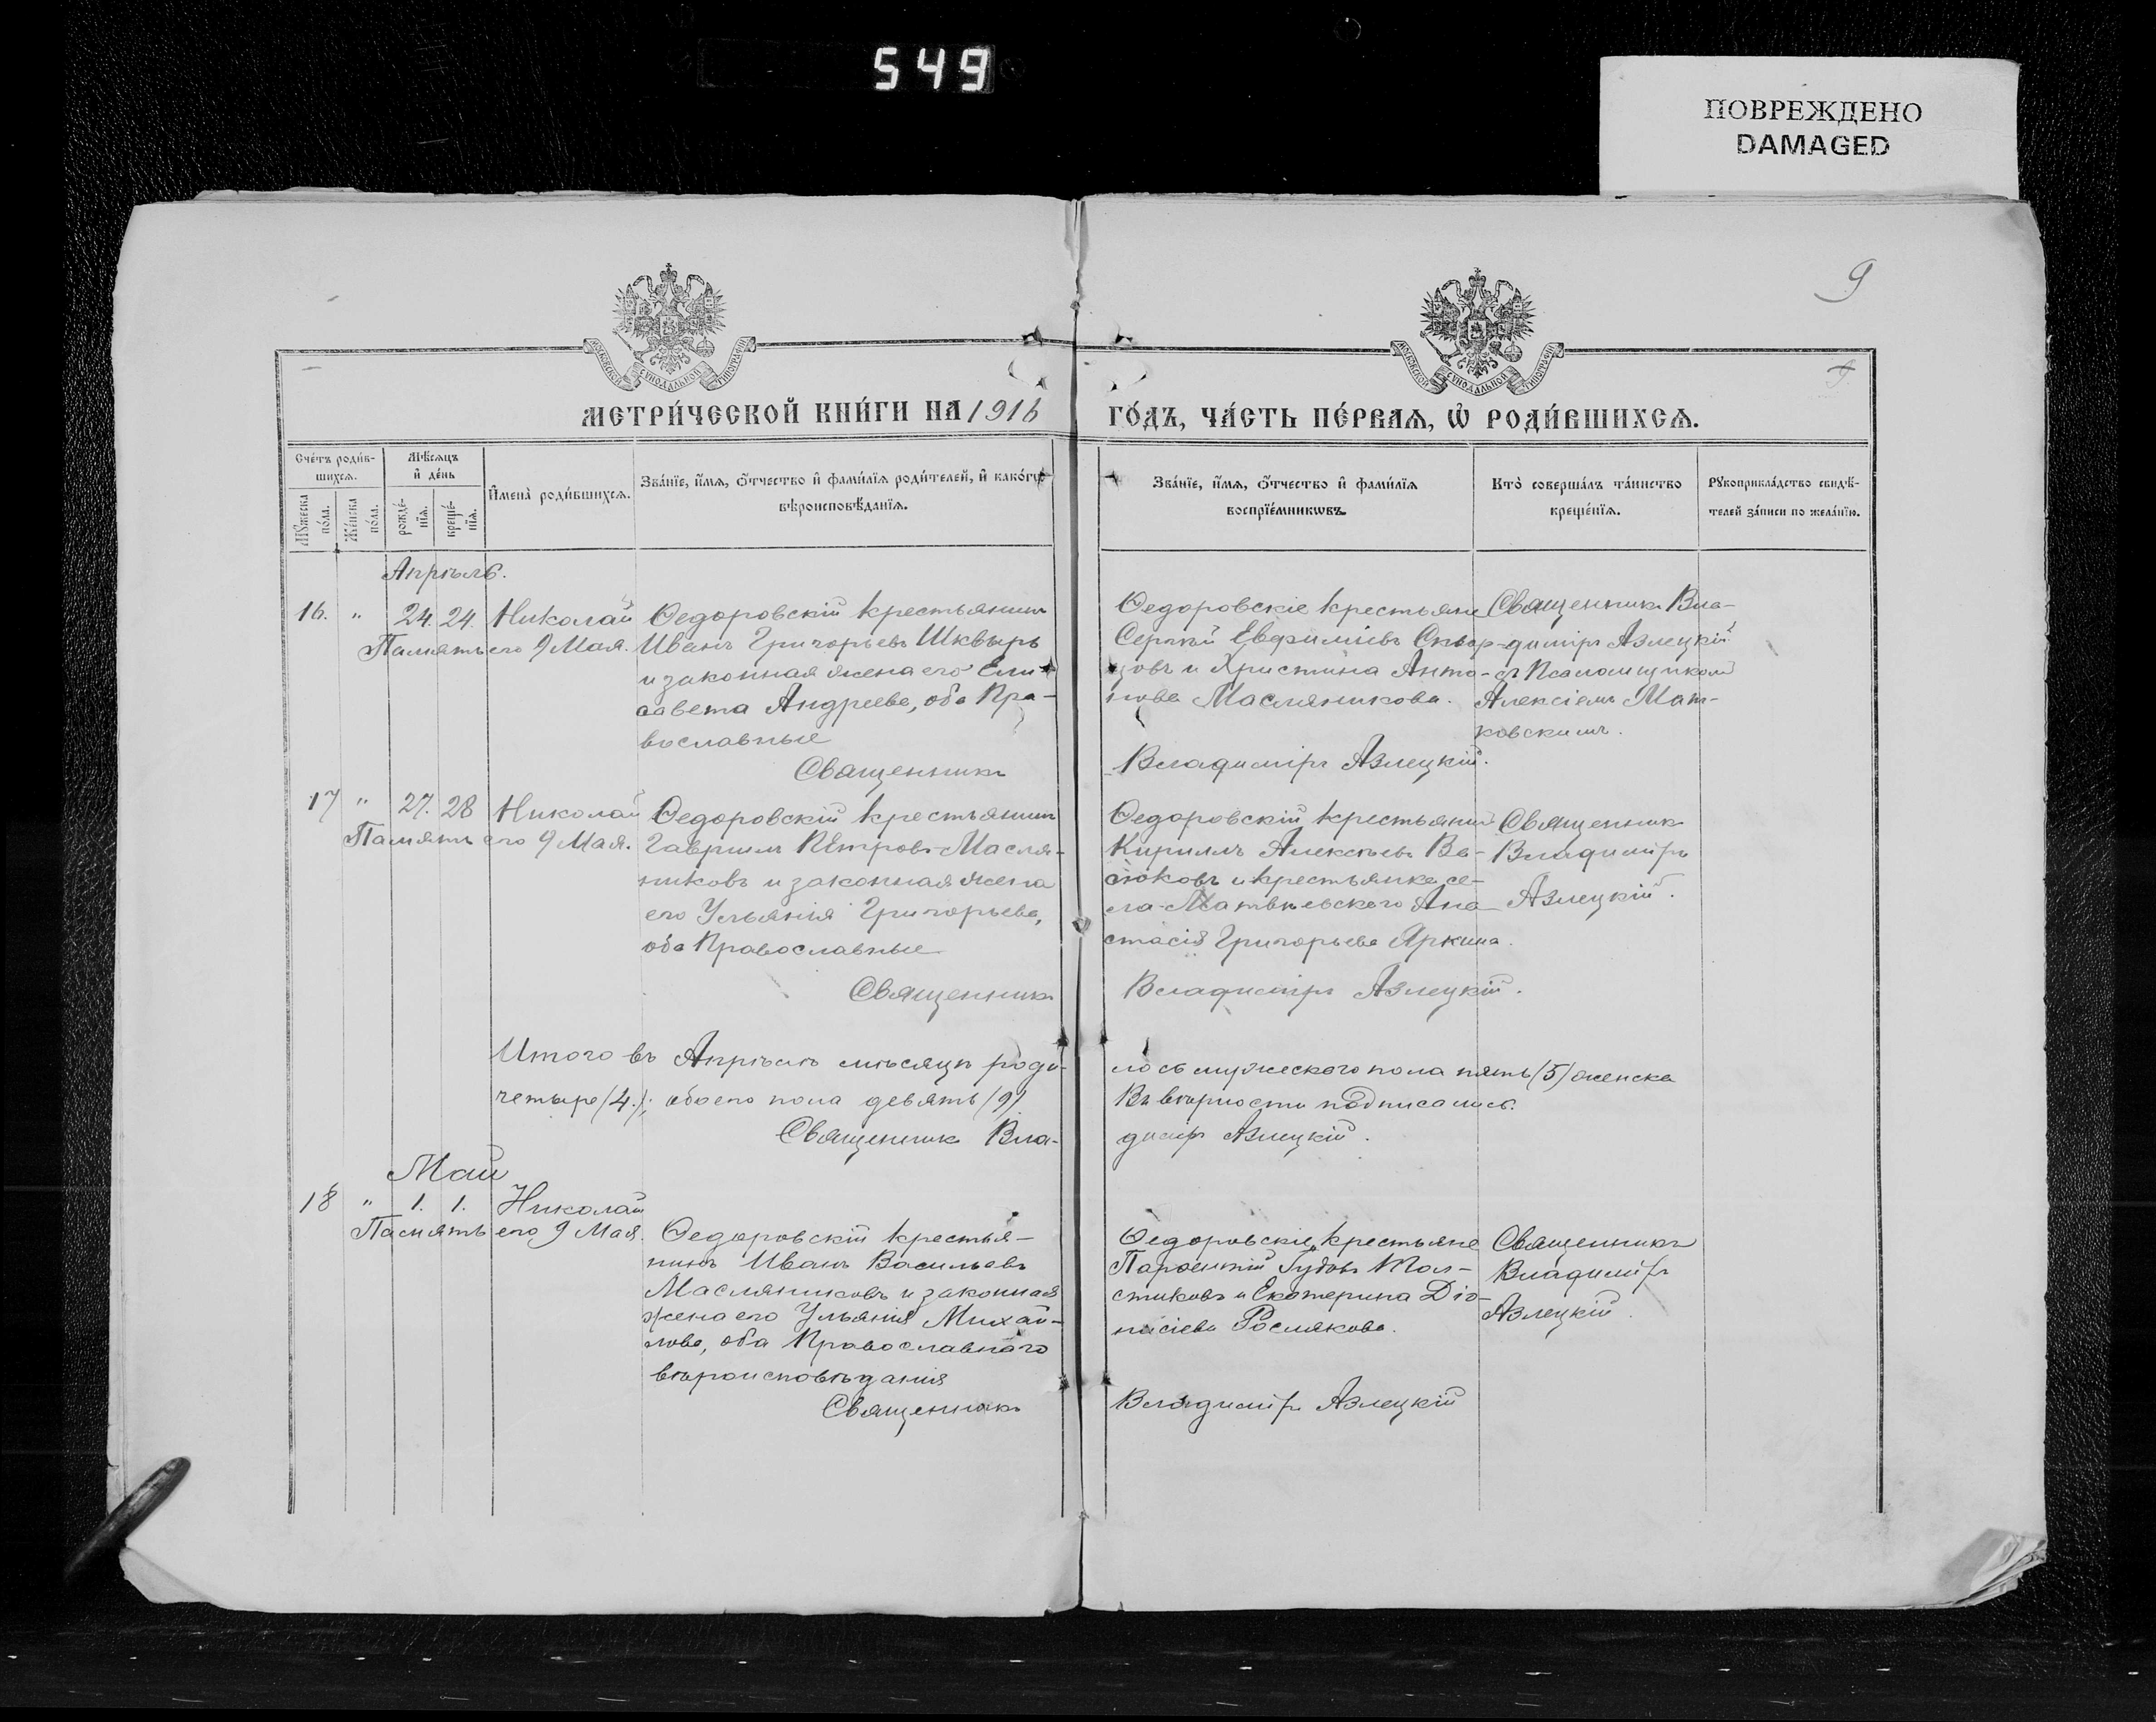 549
ПОВРЕЖДЕНО
DAMAGED
9
9
МОСКОВСКОЙ СУНОДАЛЬНОЙ ТИПОГРАФІИ
МОСКОВСКОЙ СУНОДАЛЬНОЙ ТИПОГРАФІИ
МЕТРИ́ЧЕСКОЙ КНИ́ГИ НА 1916
ГО́ДЪ, ЧА́СТЬ ПЕ́РВАѦ, Ѡ РОДИ́ВШИХСѦ.
Сче́тъ роди́в-
шихсѧ.
Мѣ́сѧцъ
и де́нь
Мꙋ́жеска
по́ла.
Же́нска
по́ла.
рожде́-
нїѧ.
креще́-
нїѧ.
И҆мена̀ роди́вшихсѧ.
Зва́нїе, и҆́мѧ, ѻ҆́тчество и҆ фами́лїѧ роди́телей, и҆ како́гѡ
вѣроисповѣ́данїѧ.
Зва́нїе, и҆́мѧ, ѻ҆́тчество и҆ фами́лїѧ
воспрїе́мникѡвъ.
Кто̀ соверша́лъ та́инство
креще́нїѧ.
Рꙋкоприкла́дство свидѣ́-
телей за́писи по жела́нїю.
Апрѣль.
16. " 24. 24. Николай
Память его 9 Мая.
Ѳедоровскій крестьянинъ
Иванъ Григорьевъ Шквырь
и законная жена его Ели-
савета Андреева, оба Пра-
вославные
Священникъ
Ѳедоровскіе крестьяне
Сергѣй Евфиміевъ Сквор-
цовъ и Христина Анто-
нова Масляникова.
Владиміръ Азлецкій.
Священникъ Вла-
димiръ Азлецкій
съ Псаломщикомъ
Алексіемъ Мат-
ковскимъ.
17 " 27. 28 Николай
Память его 9 Мая.
Ѳедоровскій крестьянинъ
Гавріилъ Петровъ Масля-
никовъ и законная жена
его Ульянія Григорьева,
оба Православные
Священникъ
Ѳедоровскій крестьянинъ
Кириллъ Алексѣевъ Ва-
сюковъ и крестьянка се-
ла Матвѣевского Ана
стасія Григорьева Яркина.
Владиміръ Азлецкій.
Священникъ
Владиміръ
Азлецкій.
Итого въ Апрѣлѣ мѣсяцѣ роди-
лось мужеского пола пять (5) женска
четыре (4.); обоего пола девять (9)
Въ вѣрности подписались.
Священникъ Вла-
диміръ Азлецкій.
Май
18 " 1. 1. Николай
Память его 9 Мая.
Ѳедоровскій крестья-
нинъ Иванъ Васильевъ
Масляниковъ и законная
жена его Ульянія Михай-
лова, оба Православнаго
вѣроисповѣданія
Священникъ
Ѳедоровскіе крестьяне
Гудовъ Тол-
стиковъ и Екатерина Діо-
нисіева Рослякова.
Владиміръ Азлецкій
Священникъ
Владиміръ
Азлецкій.